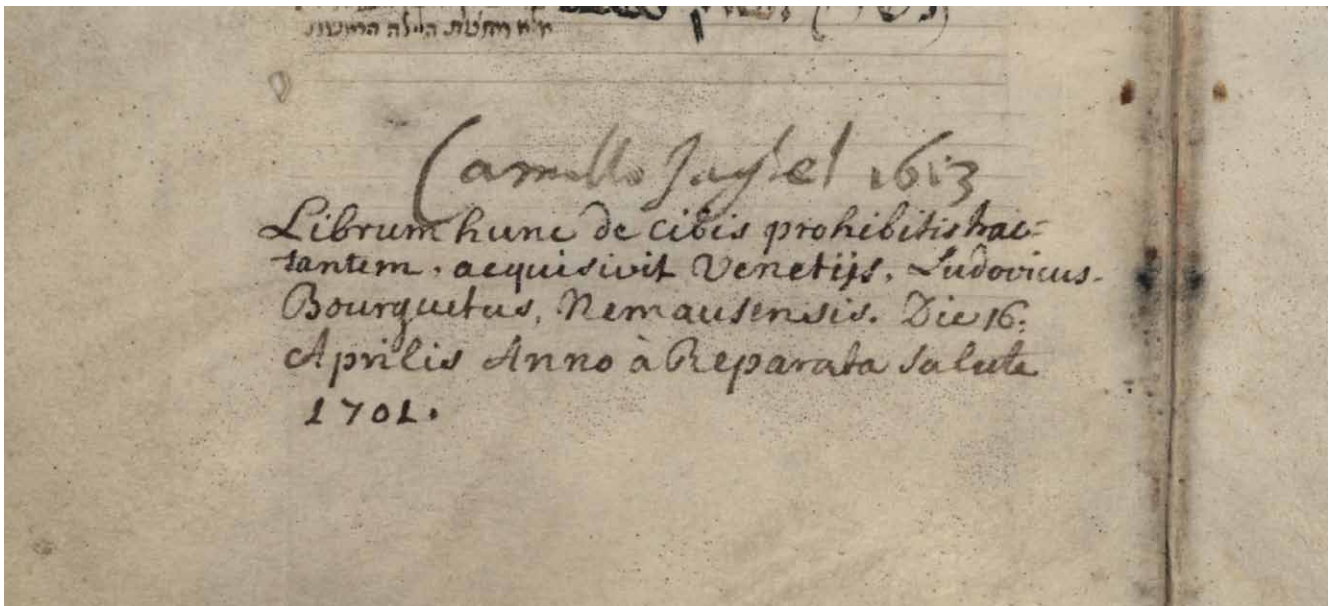 Camillo Jaghel 1613
Librum hunc de cibis prohibitis trac-
tantem, acquisivit Venetijs, Ludovicus
Bourguetus, Nemausensis. Die 16.
Aprilis Anno à Reparata Salute
1701.